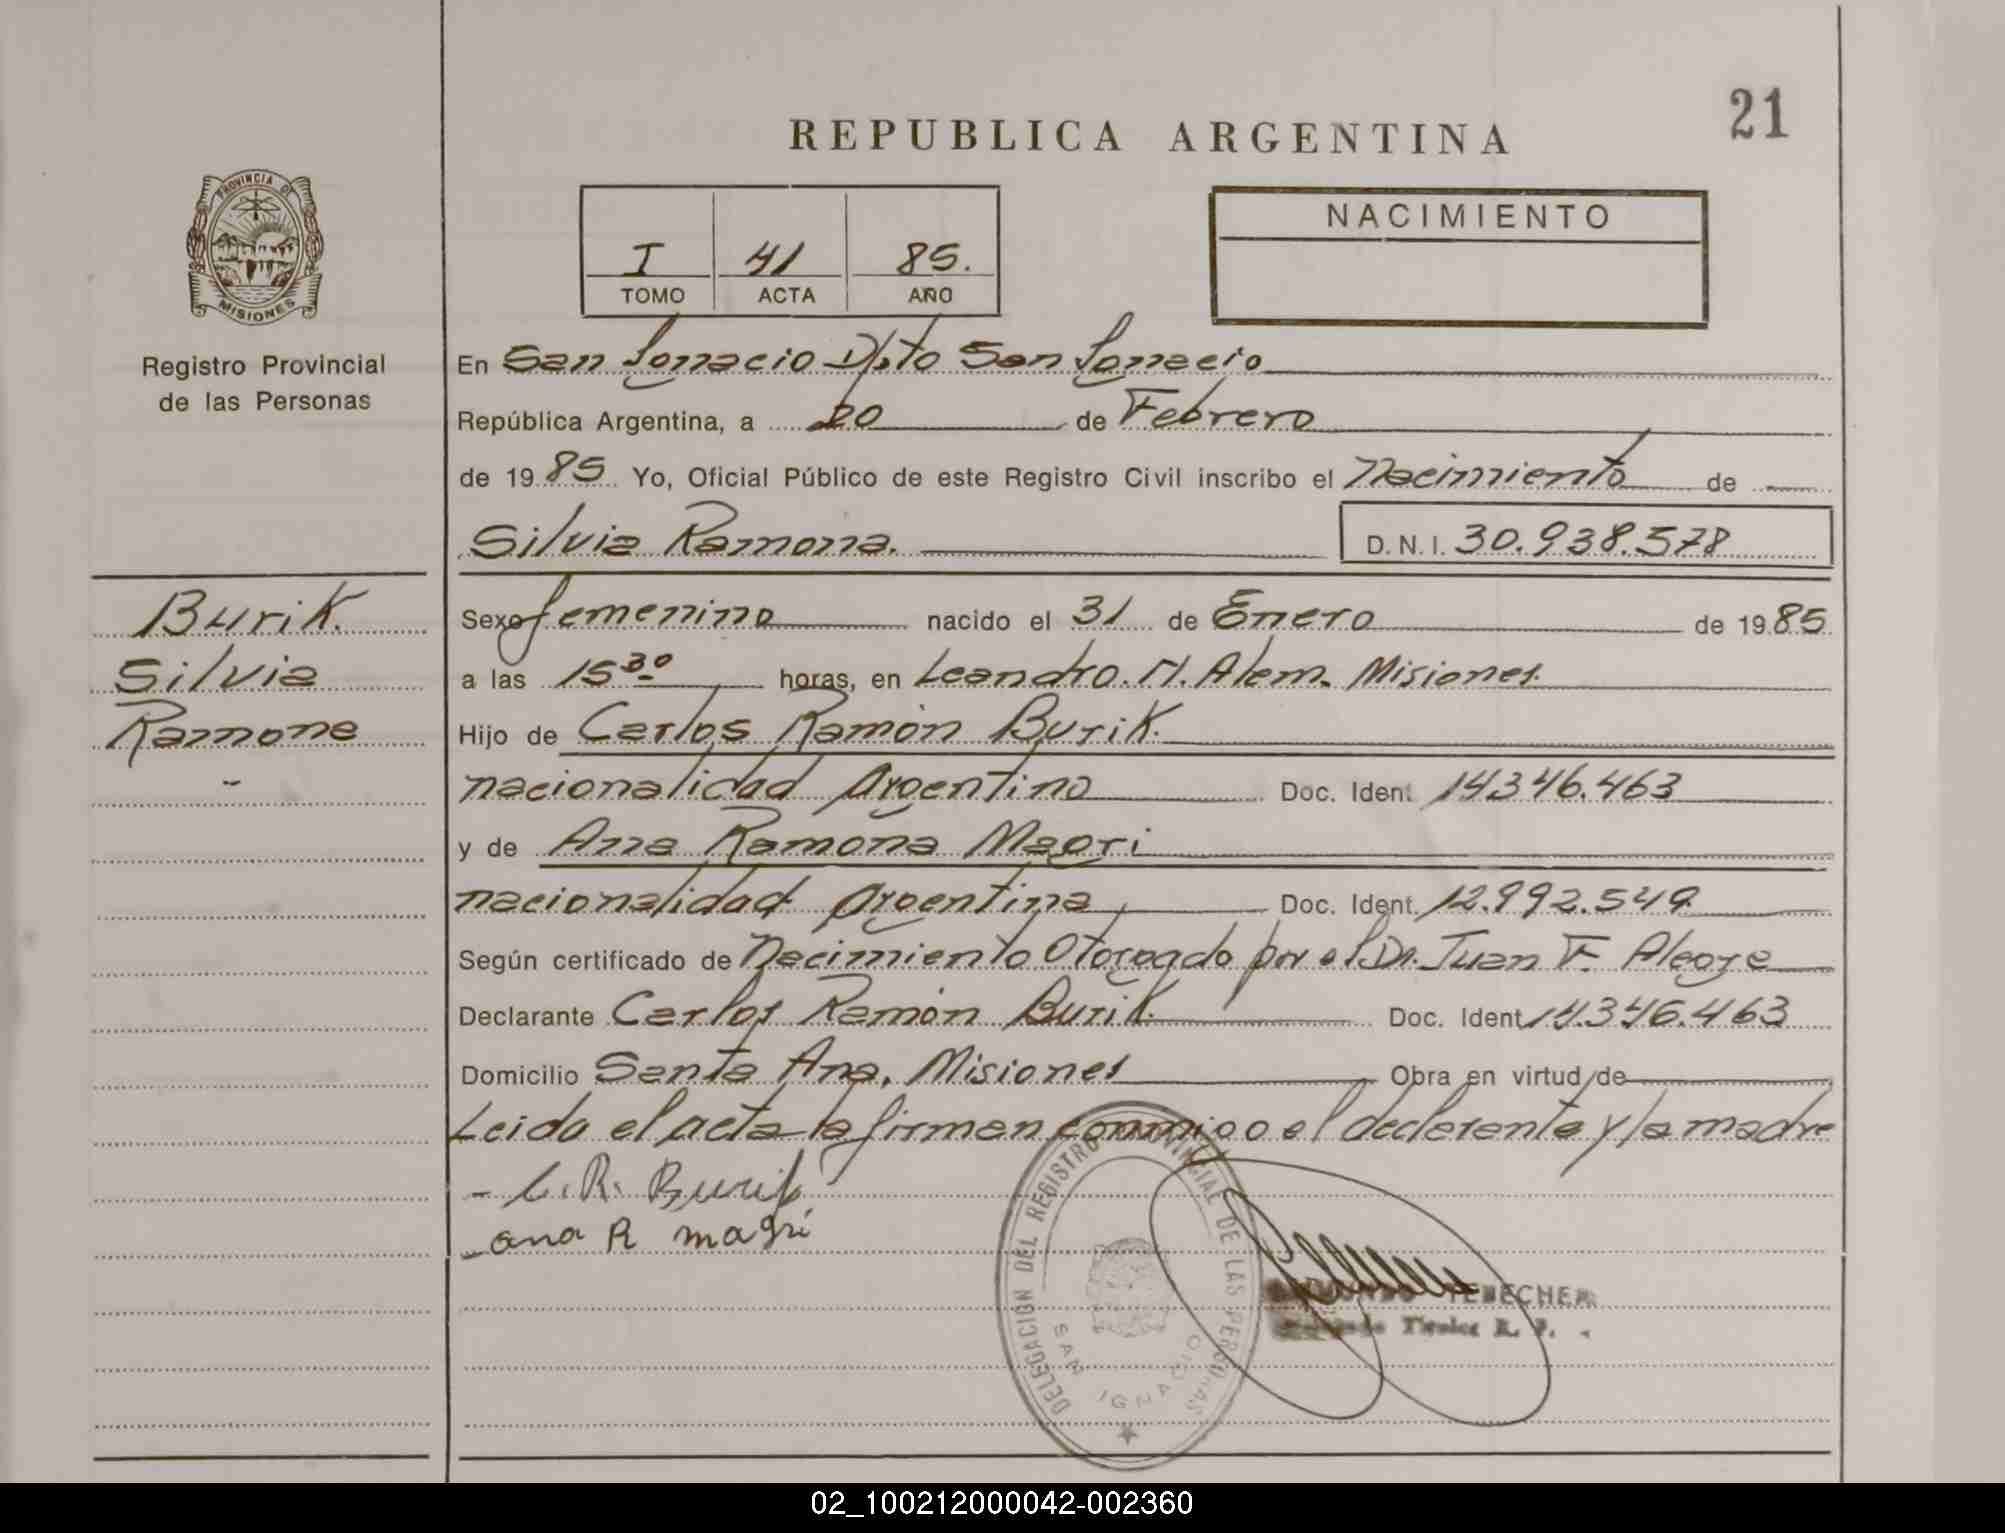 21
REPUBLICA ARGENTINA
PROVINCIA DE
MISIONES
Registro Provincial
de las Personas
I 41 85.
TOMO ACTA AÑO
NACIMIENTO
En San Ignacio Dpto San Ignacio
República Argentina, a 20 de Febrero
de 1985 Yo, Oficial Público de este Registro Civil inscribo el Nacimiento de
Silvia Ramona. D.N.I. 30.938.578
Burik.
Silvia
Ramona
Sexo femenino nacido el 31 de Enero de 1985
a las 15 30 horas, en Leandro. N. Alem. Misiones.
Hijo de Carlos Ramón Burik.
nacionalidad Argentino Doc. Ident. 14346.463
y de Ana Ramona Magri
nacionalidad Argentina Doc. Ident. 12.992.549
Según certificado de Nacimiento Otorgado por el Dr. Juan F. Alegre
Declarante Carlos Ramón Burik. Doc. Ident 14.346.463
Domicilio Santa Ana, Misiones Obra en virtud de
Leida el acta la firman conmigo el declarante y la madre
- C.R. Burik
- ana R magri
DELEGACION DEL REGISTRO PROVINCIAL DE LAS PERSONAS
SAN IGNACIO
TEBECHER
Titular R. P.
02_100212000042-002360